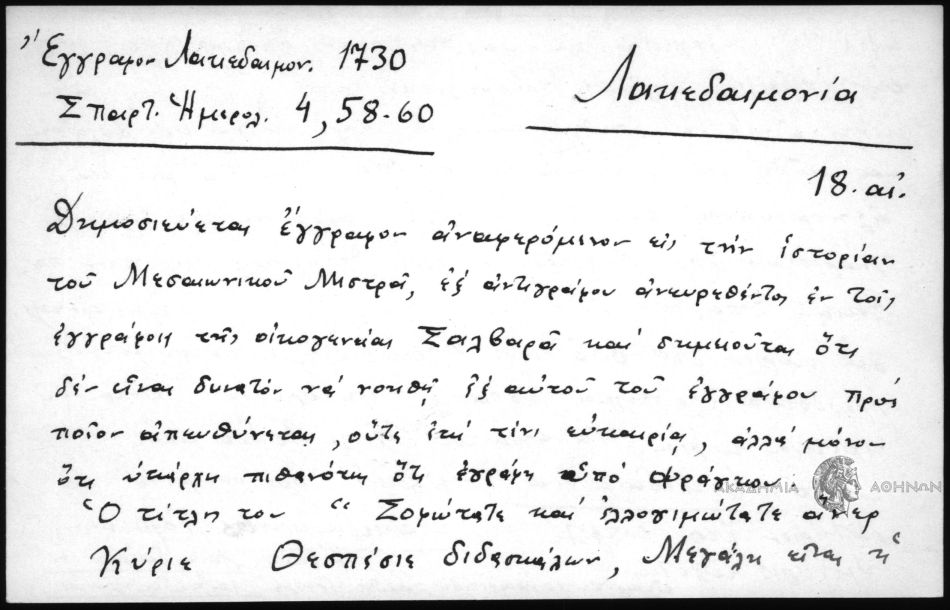 Ἔγγραφον Λακεδαιμον. 1730
Σπαρτ. Ἡμερολ. 4, 58-60
Λακεδαιμονία
18. αἰ.
Δημοσιεύεται ἔγγραφον ἀναφερόμενον εἰς τὴν ἱστορίαν
τοῦ Μεσαιωνικοῦ Μιστρᾶ, ἐξ ἀντιγράφου ἀνευρεθέντος ἐν τοῖς
ἐγγράφοις τῆς οἰκογενείας Σαλβαρᾶ καὶ σημειοῦται ὅτι
δέν εἶναι δυνατόν νά νοηθῇ ἐξ αὐτοῦ τοῦ ἐγγράφου πρός
ποῖον ἀπευθύνεται, οὔτε ἐπί τίνι εὐκαιρίᾳ, ἀλλά μόνον
ὅτι ὑπάρχει πιθανότης ὅτι ἐγράφη ἀπό Φράγκων.
Ὁ τίτλος του " Σοφώτατε καὶ ἐλλογιμώτατε ἄνερ
Κύριε Θεσπέσιε διδασκάλων, Μεγάλη εἶναι ἡ
ΑΚΑΔΗΜΙΑ ΑΘΗΝΩΝ